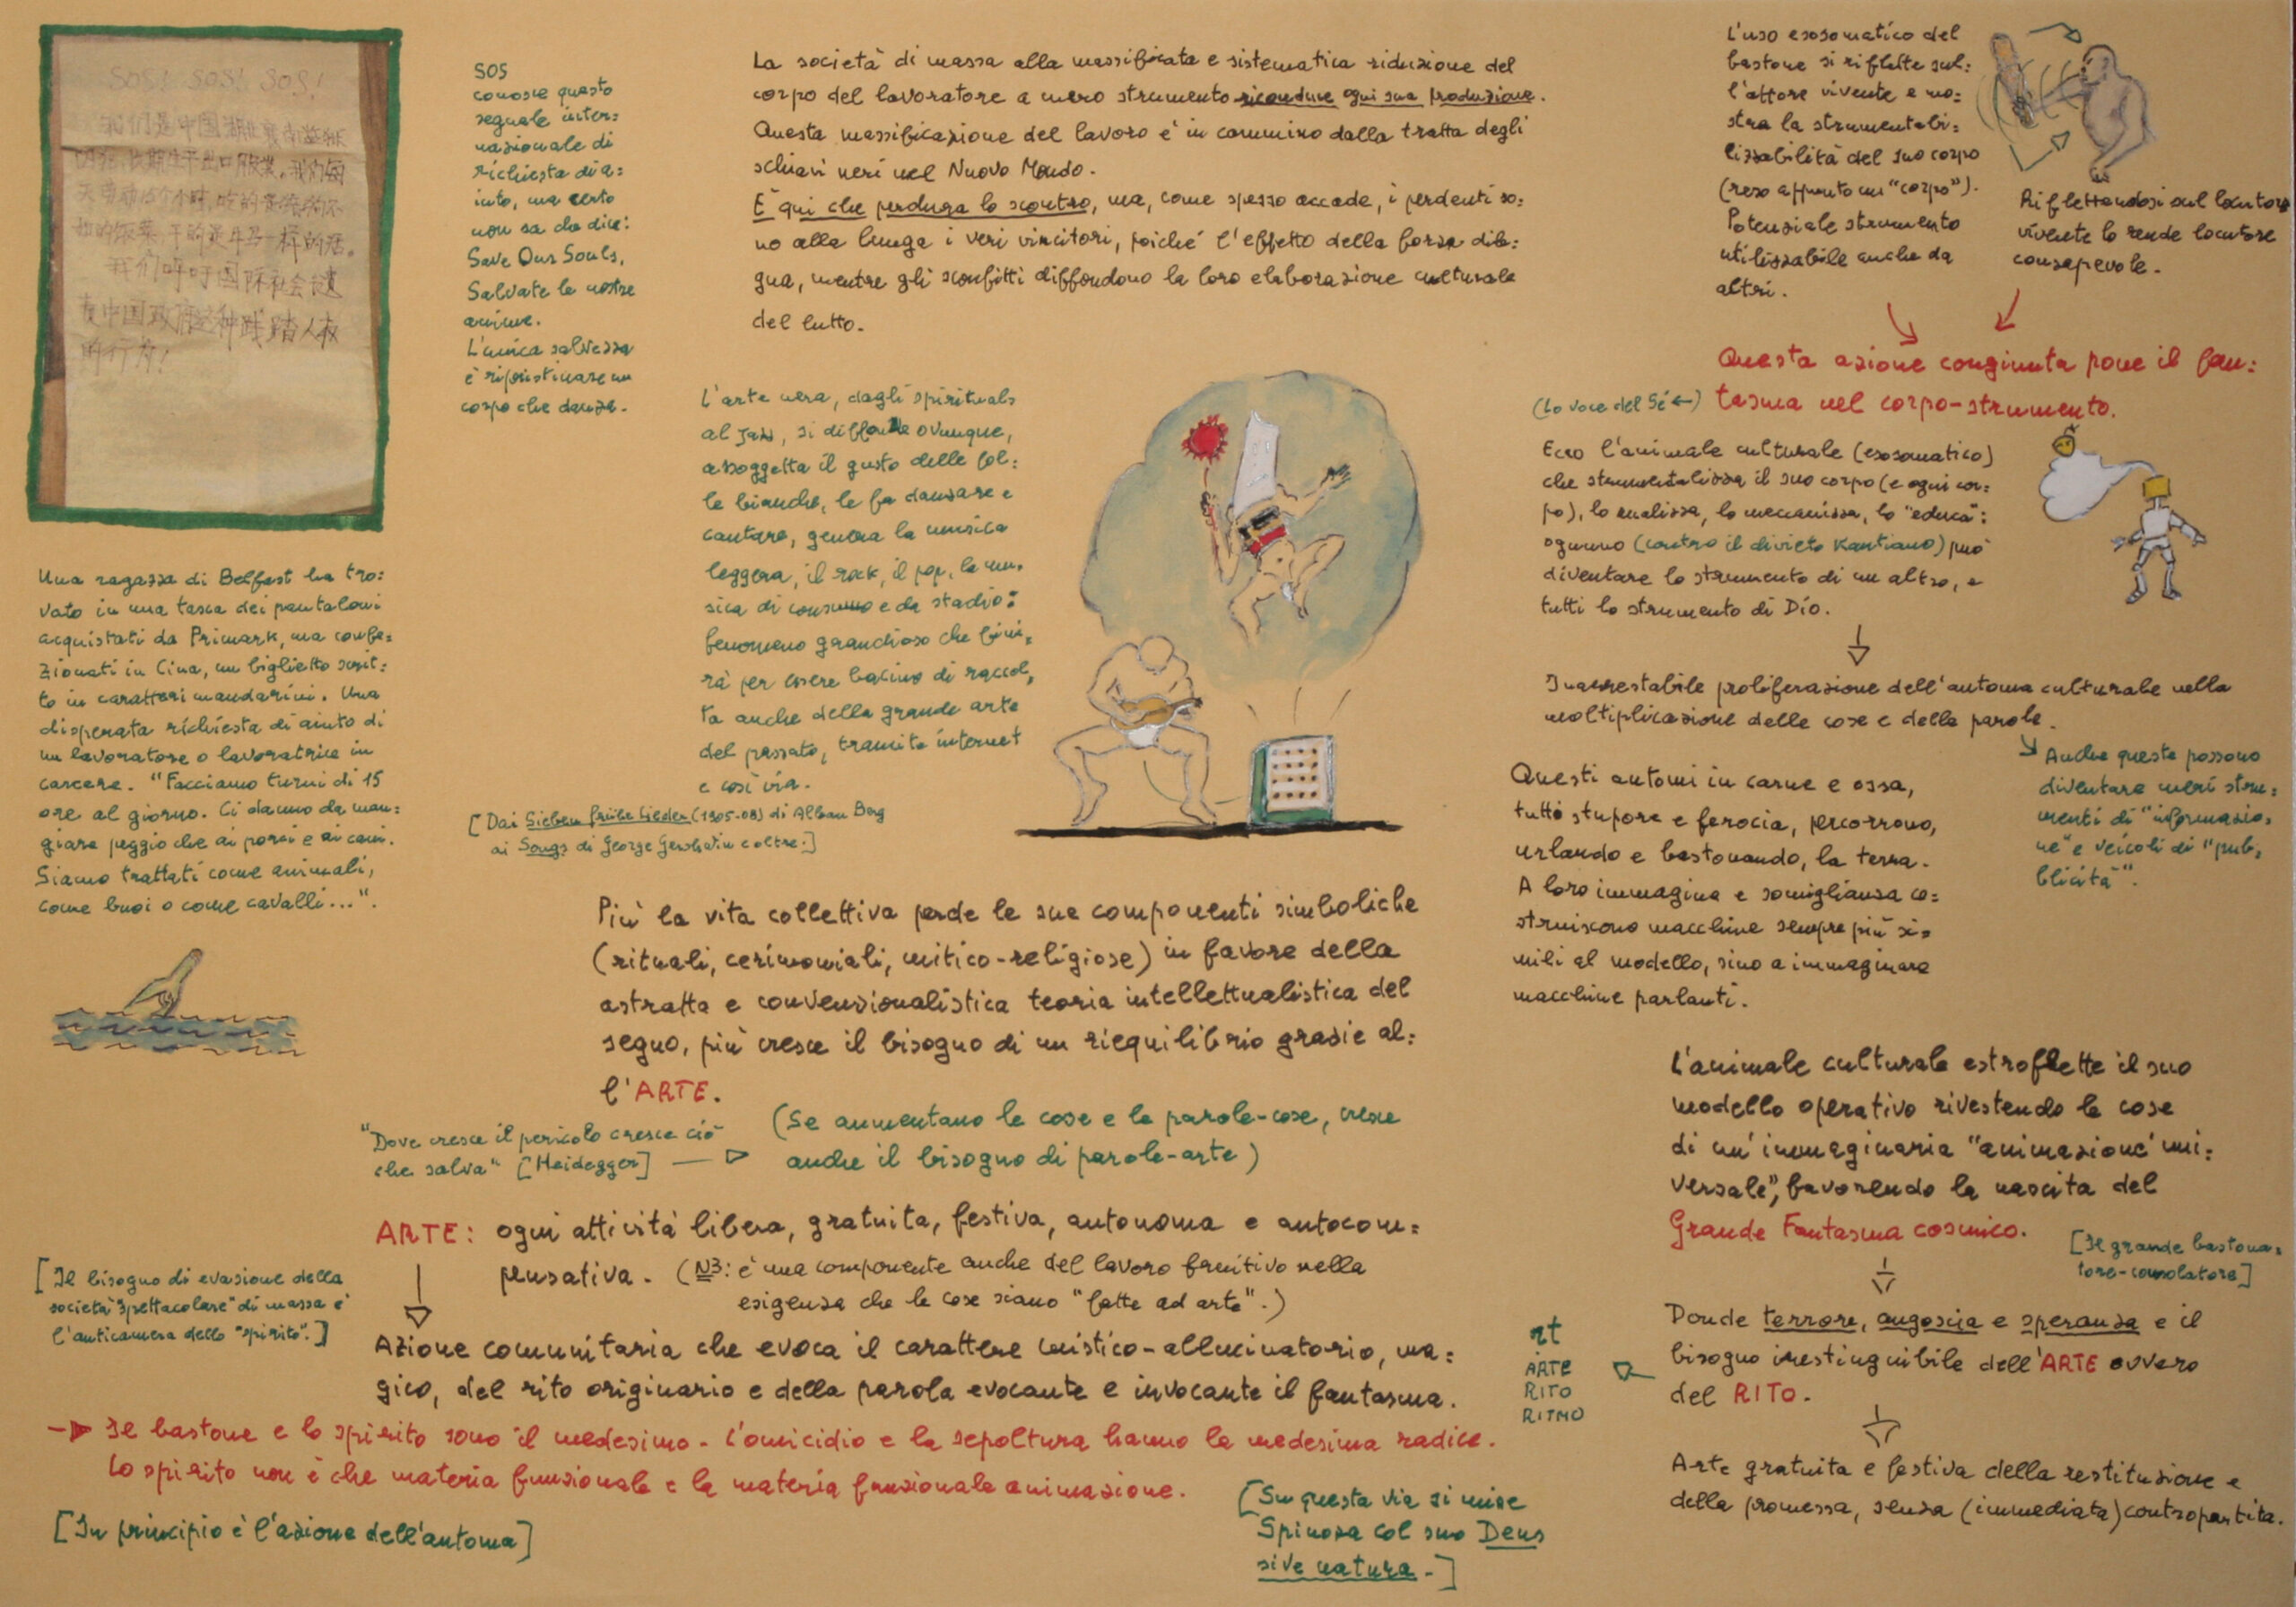 SOS! SOS! SOS!
我们是中国湖北襄南监狱
囚犯,长期生产出口服装。我们每
天劳动15个小时,吃的是猪狗不
如的饭菜,干的是牛马一样的活。
我们呼吁国际社会谴
责中国政府这种践踏人权
的行为!
Una ragazza di Belfast ha tro=
vato in una tasca dei pantaloni
acquistati da Primark, ma confe=
zionati in Cina, un biglietto scrit=
to in caratteri mandarini. Una
disperata richiesta di aiuto di
un lavoratore o lavoratrice in
carcere. "Facciamo turni di 15
ore al giorno. Ci danno da man=
giare peggio che ai porci e ai cani.
Siamo trattati come animali,
come buoi o come cavalli...".
SOS
conosce questo
segnale inter=
nazionale di
richiesta di a=
iuto, ma certo
non sa che dice:
Save Our Souls,
Salvate le nostre
anime.
L'unica salvezza
è ripristinare un
corpo che danza.
La società di massa alla massificata e sistematica riduzione del
corpo del lavoratore a mero strumento riconduce ogni sua produzione.
Questa massificazione del lavoro è in cammino dalla tratta degli
schiavi neri nel Nuovo Mondo.
È qui che perdura lo scontro, ma, come spesso accade, i perdenti so=
no alla lunga i veri vincitori, poiché l'effetto della forza dile=
gua, mentre gli sconfitti diffondono la loro elaborazione culturale
del lutto.
L'arte nera, dagli spirituals
al jazz, si diffonde ovunque,
assoggetta il gusto delle fol=
le bianche, le fa danzare e
cantare, genera la musica
leggera, il rock, il pop, la mu=
sica di consumo e da stadio:
fenomeno grandioso che fini=
rà per essere bacino di raccol=
ta anche della grande arte
del passato, tramite internet
e così via.
[Dai Sieben frühe Lieder (1905-08) di Alban Berg
ai Songs di George Gershwin e oltre.]
Più la vita collettiva perde le sue componenti simboliche
(rituali, cerimoniali, mitico-religiose) in favore della
astratta e convenzionalistica teoria intellettualistica del
segno, più cresce il bisogno di un riequilibrio grazie al=
l'ARTE.
"Dove cresce il pericolo cresce ciò
che salva" [Heidegger]
(Se aumentano le cose e le parole-cose, cresce
anche il bisogno di parole-arte)
ARTE: ogni attività libera, gratuita, festiva, autonoma e autocom=
pensativa. (NB: è una componente anche del lavoro fruitivo nella
esigenza che le cose siano "fatte ad arte".)
[Il bisogno di evasione della
società "spettacolare" di massa è
l'anticamera dello "spirito".]
Azione comunitaria che evoca il carattere mistico-allucinatorio, ma=
gico, del rito originario e della parola evocante e invocante il fantasma.
Il bastone e lo spirito sono il medesimo. L'omicidio e la sepoltura hanno la medesima radice.
Lo spirito non è che materia funzionale e la materia funzionale animazione.
[In principio è l'azione dell'automa]
[Su questa via si mise
Spinoza col suo Deus
sive natura.]
L'uso esosomatico del
bastone si riflette sul=
l'attore vivente e mo=
stra la strumentabi=
lizzabilità del suo corpo
(reso appunto un "corpo").
Potenziale strumento
utilizzabile anche da
altri.
Riflettendosi sul locutore
vivente lo rende locutore
consapevole.
Questa azione congiunta pone il fan=
tasma nel corpo-strumento.
(La voce del Sé ←)
Ecco l'animale culturale (esosomatico)
che strumentalizza il suo corpo (e ogni cor=
po), lo analizza, lo meccanizza, lo "educa":
ognuno (contro il divieto Kantiano) può
diventare lo strumento di un altro, e
tutti lo strumento di Dio.
Inarrestabile proliferazione dell'automa culturale nella
moltiplicazione delle cose e delle parole.
Anche queste possono
diventare meri stru=
menti di "informazio=
ne" e veicoli di "pub=
blicità".
Questi automi in carne e ossa,
tutti stupore e ferocia, percorrono,
urlando e bastonando, la terra.
A loro immagine e somiglianza co=
struiscono macchine sempre più si=
mili al modello, sino a immaginare
macchine parlanti.
L'animale culturale estroflette il suo
modello operativo rivestendo le cose
di un'immaginaria "animazione uni=
versale", favorendo la nascita del
Grande Fantasma cosmico.
[Il grande bastona=
tore-consolatore]
Donde terrore, angoscia e speranza e il
bisogno inestinguibile dell'ARTE ovvero
del RITO.
rt
ARTE
RITO
RITMO
Arte gratuita e festiva della restituzione e
della promessa, senza (immediata) contropartita.